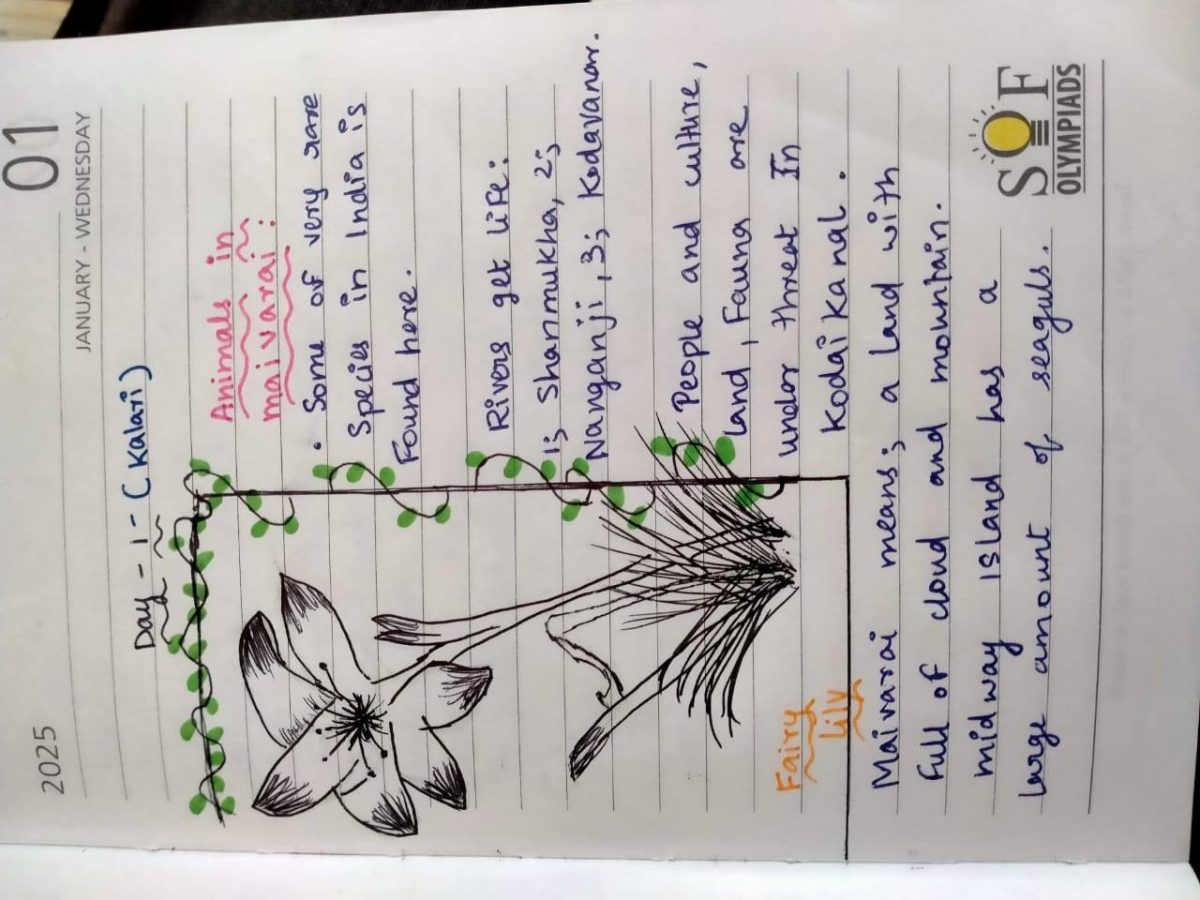 2025
01
JANUARY - WEDNESDAY
Day - 1 - (Kalari)
Animals in
maivarai :
• Some of very rare
Species in India is
Found here.
Rivers get life:
1; Shanmukha, 2;
Nanganji, 3; Kodavanar.
People and culture,
land, Fauna are
under threat In
Kodaikanal.
Fairy
lily
Maivarai means; a land with
full of cloud and mountain.
midway island has a
large amount of seaguls.
SOF
OLYMPIADS